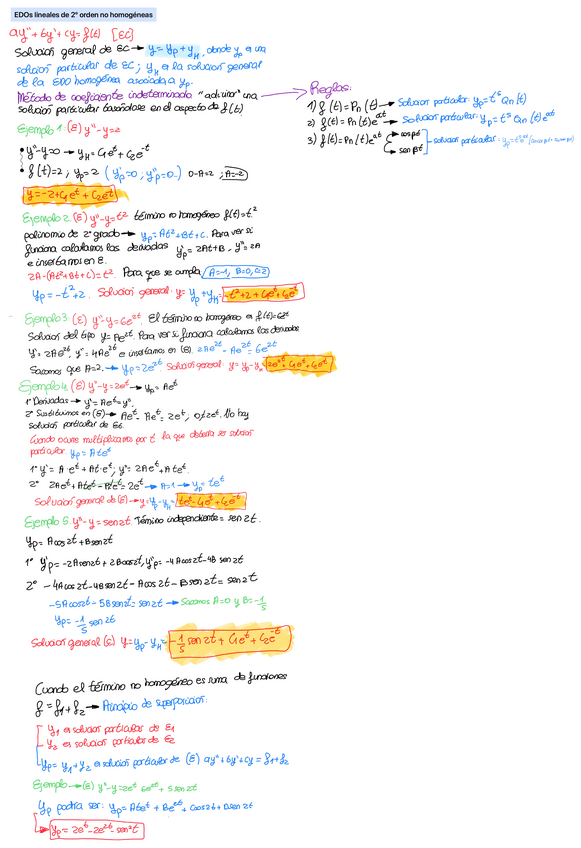 EDOs lineales de 2º orden no homogéneas
ay''+by'+cy=f(t) [EC]
Solución general de EC → y=yp+yH, donde yp es una
solución particular de EC; yH es la solución general
de la EDO homogénea asociada a yp.
Método de coeficiente indeterminado "adivinar" una
solución particular basándose en el aspecto de f(t)
Reglas:
1) f(t)=Pn(t) → Solución particular: yp=t^s Qn(t)
2) f(t)=Pn(t)e^at → Solución particular: yp=t^s Qn(t)e^at
3) f(t)=Pn(t)e^at cos βt
sen βt → solución particular:
Ejemplo 1: (E) y''-y=2
y''-y=0 → yH=C1e^t+C2e^-t
f(t)=2; yp=2 (y'p=0; y''p=0) 0-A=2; A=-2
y=-2+C1e^t+C2e^-t
Ejemplo 2. (E) y''-y=t² término no homogéneo f(t)=t²
polinomio de 2º grado → yp=At²+Bt+C. Para ver si
funciona calculamos las derivadas y'p=2At+B, y''=2A
e insertamos en E.
2A-(At²+Bt+C)=t² Para que se cumpla, A=-1, B=0,
yp=-t²+2. Solución general: y=yp+yH=
Ejemplo 3 (E) y''-y=6e^2t. El término no homogéneo es f(t)=6e^2t
Solución del tipo y=Ae^2t. Para ver si funciona calculamos las derivadas
y'=2Ae^2t, y''=4Ae^2t e insertamos en (E). 2Ae^2t-Ae^2t=6e^2t
Sacamos que A=2. → yp=2e^2t Solución general:
Ejemplo 4 (E) y''-y=2e^t → yp=Ae^t
1º Derivadas → y'=Ae^t=y''.
2º Sustituimos en (E) → Ae^t-Ae^t=2e^t; 0≠2e^t. No hay
solución particular de
Cuando ocurre multiplicamos por t la que debería ser solución
particular. yp=Ate^t
1º y'=A·e^t+At·e^t; y''=2Ae^t+Ate^t.
2º 2Ae^t+Ate^t-Ate^t=2e^t → A=1 → yp=te^t
Solución general de (E) →
Ejemplo 5. y''-y=sen2t. Término independiente= sen2t.
yp=Acos2t+Bsen2t
1º y'p=-2Asen2t+2Bcos2t, y''p=-4Acos2t-4B sen2t
2º -4Acos2t-4B sen2t-Acos2t-Bsen2t=sen2t
-5Acos2t-5Bsen2t=sen2t → Sacamos A=0 y B=-1/5
yp=-1/5 sen2t
Solución general (E) y=yp-yH=-1/5 sen2t+C1e^t+C2e^-t
Cuando el término no homogéneo es suma de funciones
f=f1+f2 → Principio de superposición:
y1 es solución particular de E1
y2 es solución particular de E2
yp=y1+y2 es solución particular de (E) ay''+by'+cy=f1+f2
Ejemplo → (E) y''-y=2e^t 6e^2t+5sen2t
yp podría ser: yp=Ate^t+Be^2t+Ccos2t+Dsen2t
yp=2e^t-2e^2t-sen²t